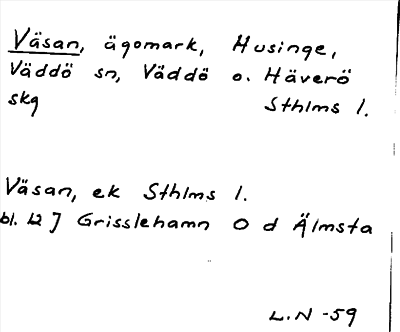 Väsan, ägomark, Husinge,
Väddö sn, Väddö o. Häverö
skg Sthlms l.
Väsan, ek Sthlms l.
bl. 12 J Grisslehamn O d Älmsta
L.N -59